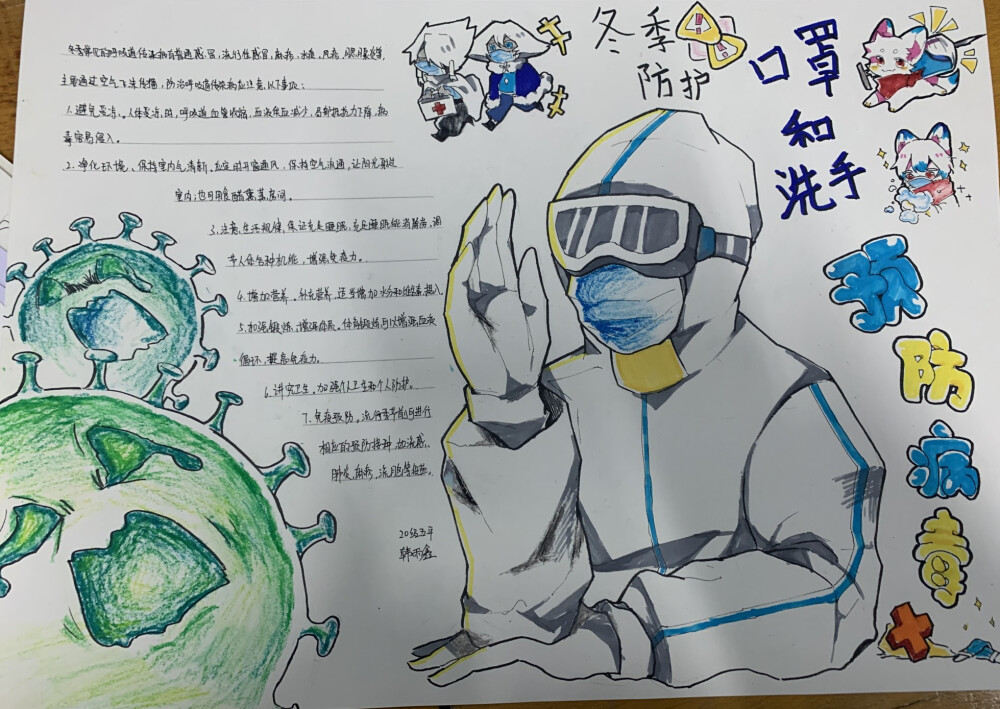 冬季常见的呼吸道传染病有普通感冒、流行性感冒、麻疹、水痘、风疹、腮腺炎等,
主要通过空气飞沫传播,防治呼吸道传染病应注意以下事项:
1.避免受凉。人体受凉时,呼吸道血管收缩,血液供应减少,局部抵抗力下降,病
毒容易侵入。
2.净化环境、保持室内空气清新,应定时开窗通风,保持空气流通,让阳光射进
室内;也可用食醋熏蒸房间。
3.注意生活规律,保证充足睡眠,充足睡眠能消除疲劳,调
节人体各种机能,增强免疫力。
4.增加营养、补充营养,适当增加水分和维生素摄入
5.加强锻炼、增强体质。体育锻炼可以增强血液
循环、提高免疫力。
6.讲究卫生。加强个人卫生和个人防护。
7.免疫预防。流行季节前可进行
相应的预防接种,如流感、
肺炎、麻疹、流脑等疫苗。
冬季
防护
口罩
和
洗手
预
防
病
毒